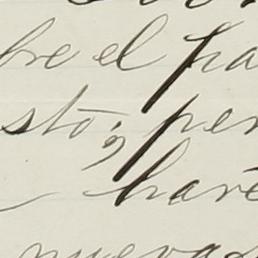 bre el pa
sto; per
hare
nueva